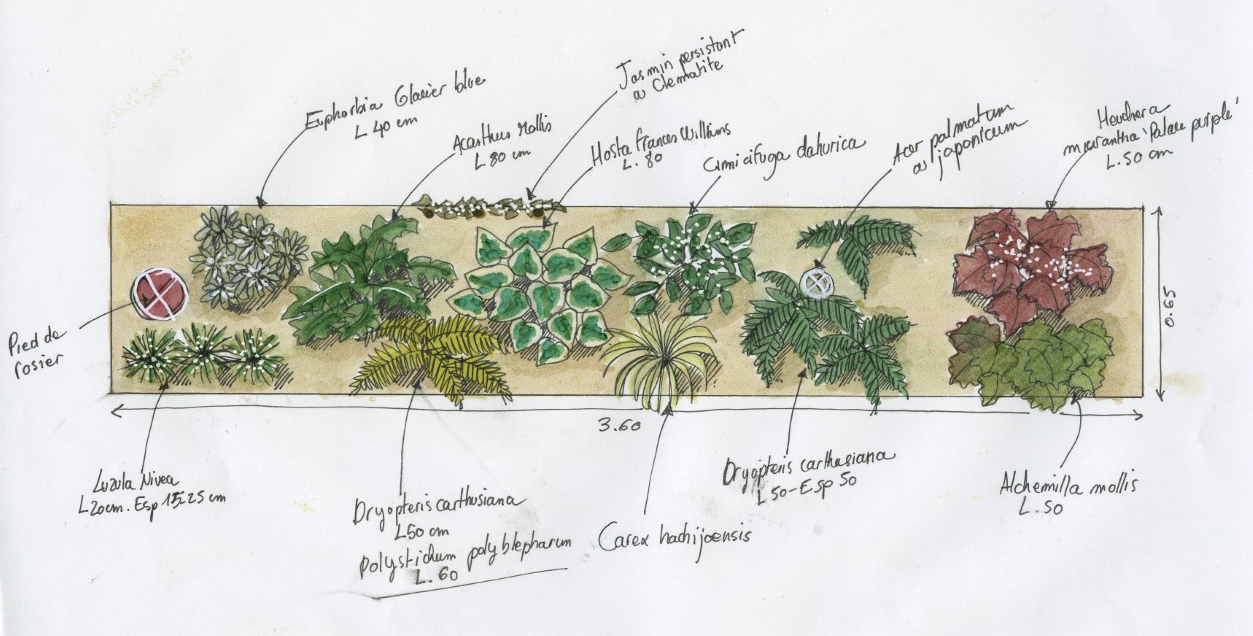 Euphorbia Glacier blue
L 40 cm
Acanthus Mollis
L. 80 cm
Jasmin persistant
ou Clematite
Hosta frances williams
L. 80
Cimicifuga dahurica
Acer palmatum
ou japonicum
Heuchera
micrantha 'Palace purple'
L. 50 cm
Pied de
rosier
0.65
3.60
Luzula Nivea
L 20cm. Esp 25 cm
Dryopteris carthusiana
L50 cm
polystichum polyblepharum
L. 60
Carex hachijoensis
Dryopteris carthusiana
L 50 - Esp 50
Alchemilla mollis
L. 50